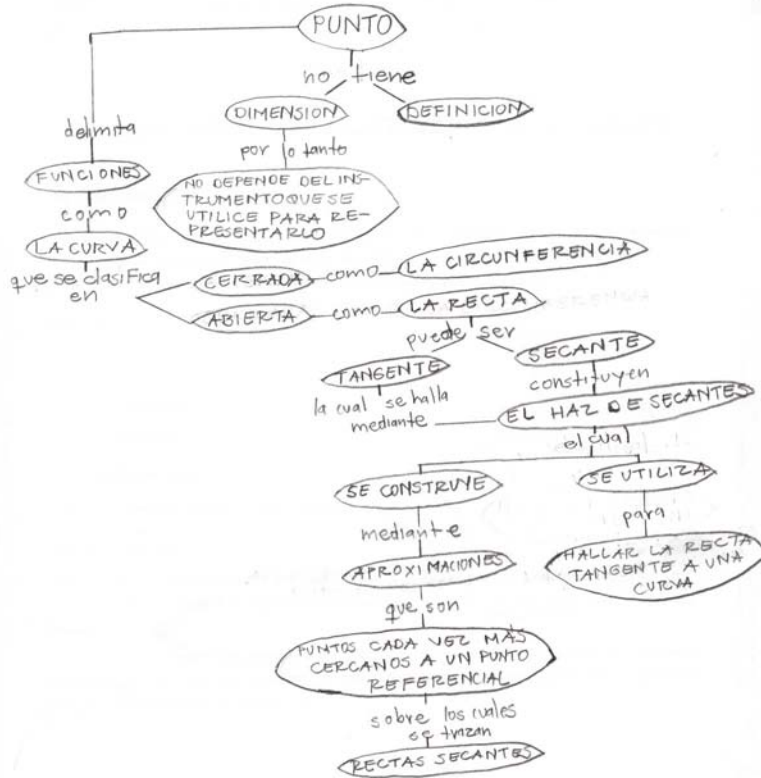 PUNTO
no tiene
DIMENSION
DEFINICION
por lo tanto
NO DEPENDE DEL INS-
TRUMENTO QUE SE
UTILICE PARA RE-
PRESENTARLO
delimita
FUNCIONES
como
LA CURVA
que se clasifica
en
CERRADA como LA CIRCUNFERENCIA
ABIERTA como LA RECTA
puede ser
TANGENTE
SECANTE
la cual se halla
mediante
constituyen
EL HAZ DE SECANTES
el cual
SE CONSTRUYE
SE UTILIZA
mediante
para
APROXIMACIONES
HALLAR LA RECTA
TANGENTE A UNA
CURVA
que son
PUNTOS CADA VEZ MÁS
CERCANOS A UN PUNTO
REFERENCIAL
sobre los cuales
se trazan
RECTAS SECANTES